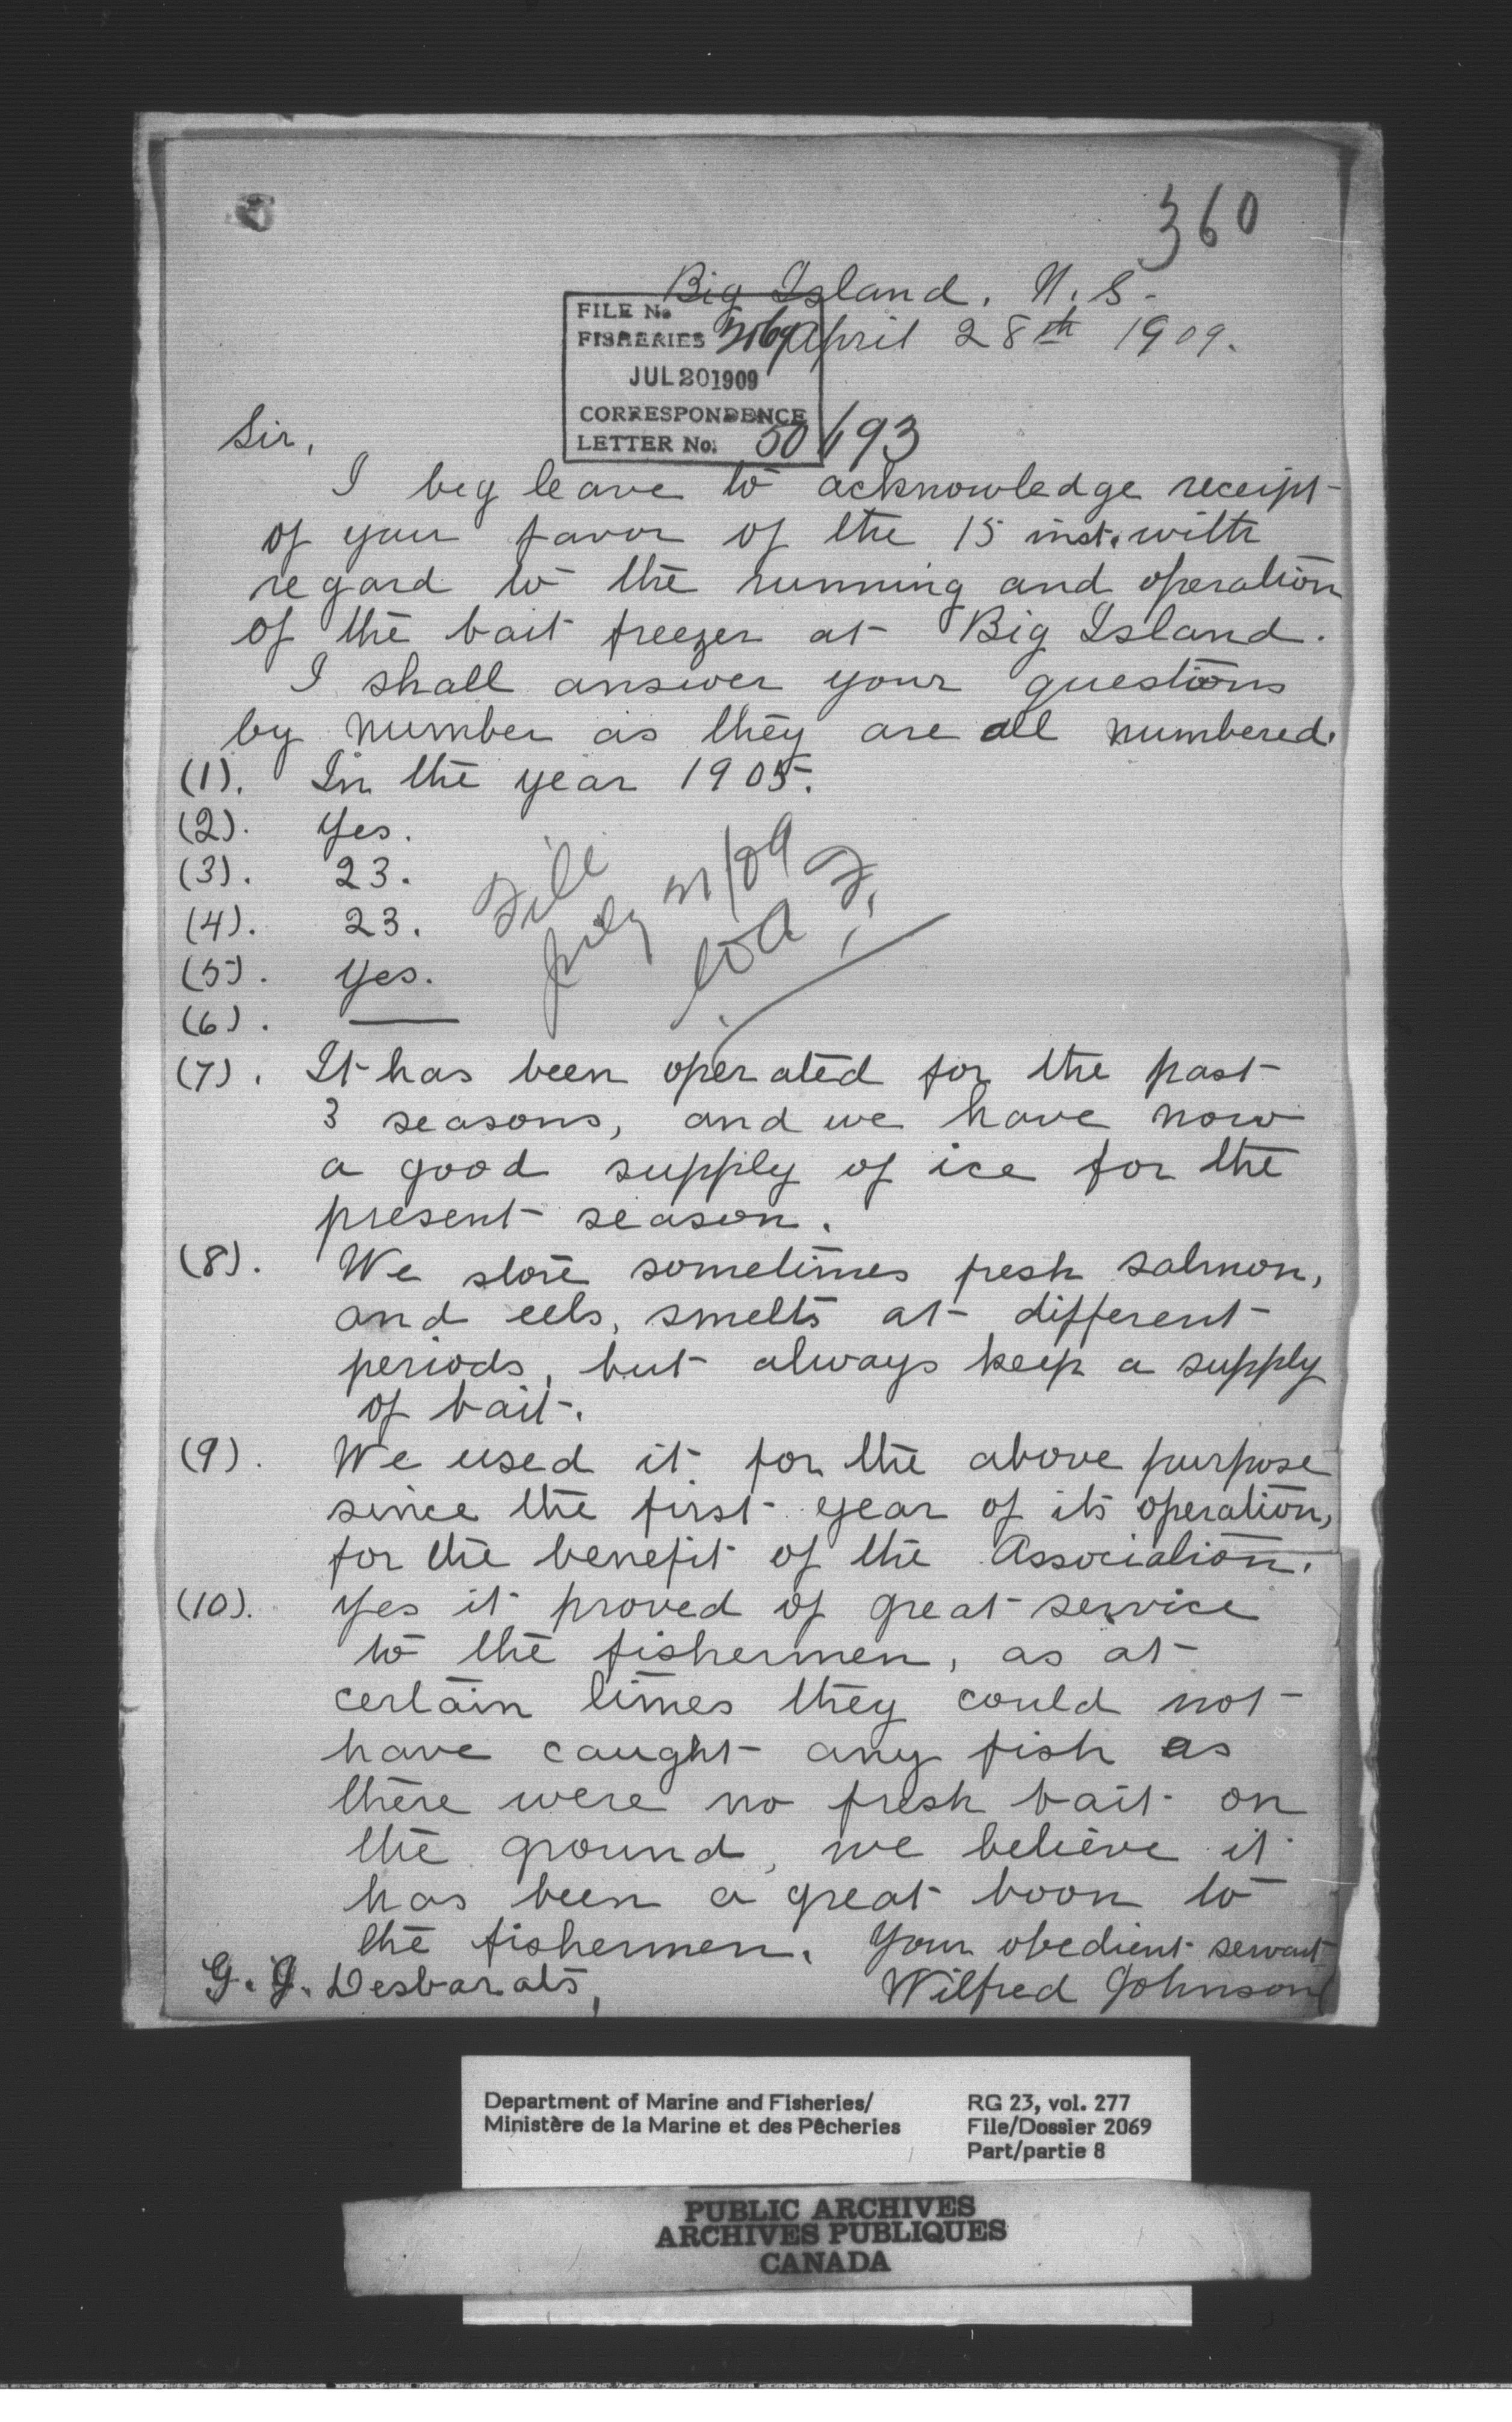 360
Big Island, N.S.
April 28th 1909.
FILE No.
FISHERIES 2069
JUL 20 1909
CORRESPONDENCE
LETTER No.
Sir,
I beg leave to acknowledge receipt
of your favor of the 15 inst. with
regard to the running and operation
of the bait freezer at Big Island.
I shall answer your questions
by number as they are all numbered.
(1). In the year 1905.
(2). Yes.
(3). 23.
(4). 23.
(5). Yes.
(6). —
File
July 21/09
(7). It has been operated for the past
3 seasons, and we have now
a good supply of ice for the
present season.
(8). We store sometimes fresh salmon,
and eels, smelts at different
periods, but always keep a supply
of bait.
(9). We used it for the above purpose
since the first year of its operation,
for the benefit of the Association.
(10). Yes it proved of great service
to the fishermen, as at
certain times they could not
have caught any fish as
there were no fresh bait on
the ground, we believe it
has been a great boon to
the fishermen. Your obedient servant
G. J. Desbarats, Wilfred Johnson
Department of Marine and Fisheries/
Ministère de la Marine et des Pêcheries
RG 23, vol. 277
File/Dossier 2069
Part/partie 8
PUBLIC ARCHIVES
ARCHIVES PUBLIQUES
CANADA